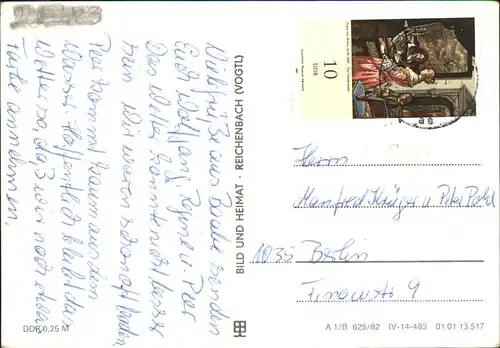 Viele Grüße aus Baabe senden
Euch Wolfgang, Regine u. Peer
Das Wetter könnte nicht besser
sein. Wir waren schon oft baden,
Peer kommt kaum aus dem
Wasser. Hoffentlich bleibt das
Wetter so, daß wir noch etwas
Farbe annehmen.
DDR 0,25 M
BILD UND HEIMAT · REICHENBACH (VOGTL)
10
DDR
Herrn
Manfred Krüger u. Peter Pohl
1035 Berlin
9
A 1/B 625/82 IV-14-483 01 01 13 517